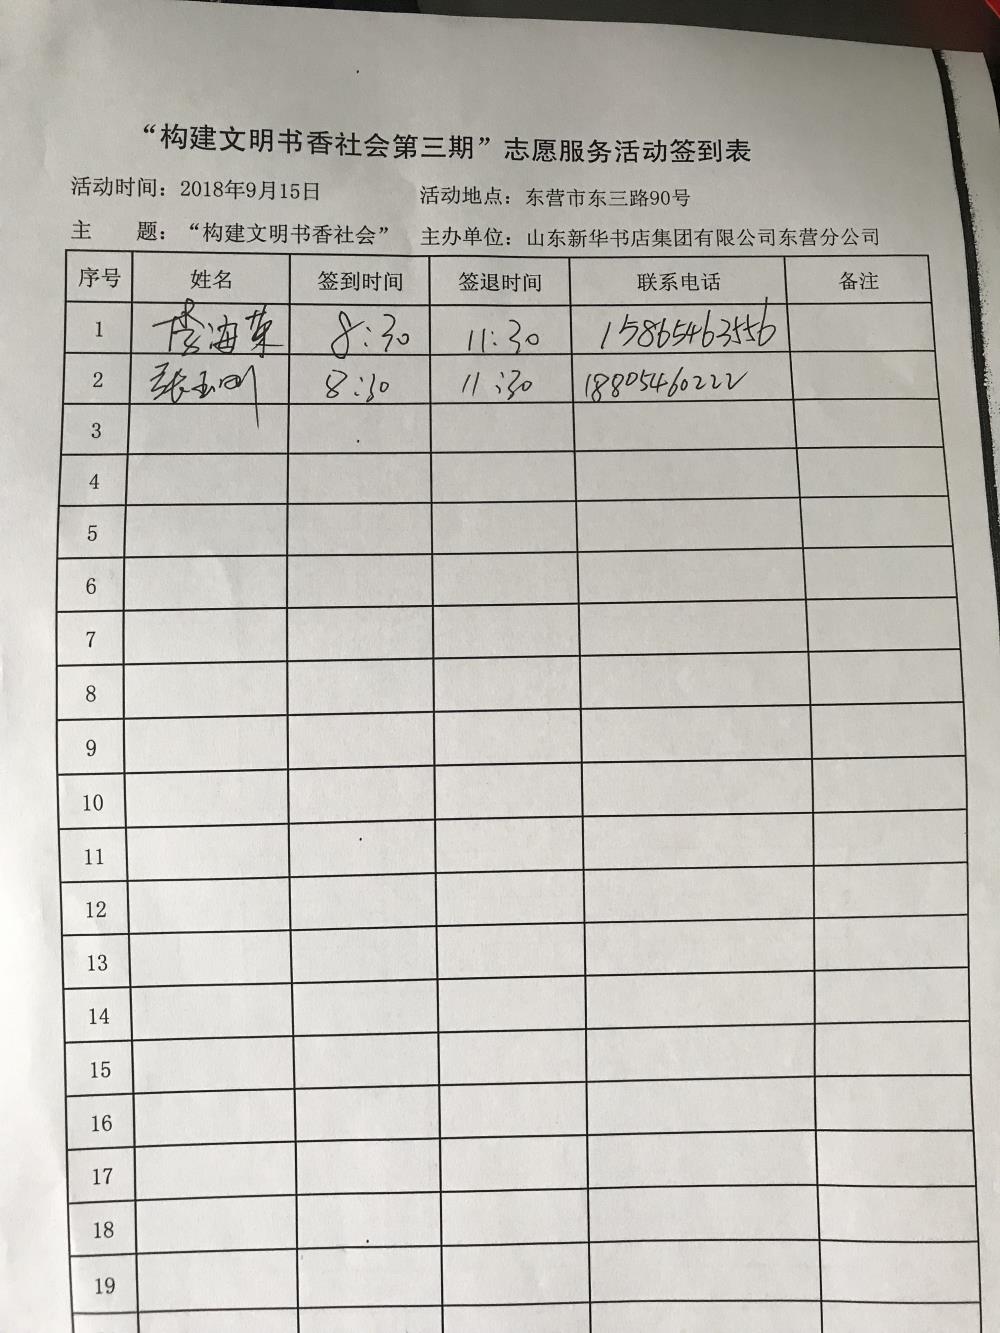 “构建文明书香社会第三期”志愿服务活动签到表
活动时间：2018年9月15日 活动地点：东营市东三路90号
主 题：“构建文明书香社会” 主办单位：山东新华书店集团有限公司东营分公司
序号 姓名 签到时间 签退时间 联系电话 备注
1 李海英 8:30 11:30 15865463556
2 张玉刚 8:30 11:30 18805460222
3
4
5
6
7
8
9
10
11
12
13
14
15
16
17
18
19